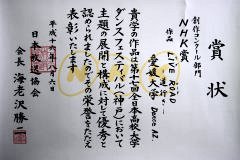 賞状
創作コンクール部門
NHK賞
作品 LIFE ROAD
愛媛大学 Dance AZ.
貴学の作品は第十七回全日本高校大学
ダンスフェスティバル(神戸)において
主題の展開と構成に対して優秀と
認められましたのでその栄誉をたたえ
表彰いたします
平成十六年八月六日
日本放送協会
会長 海老沢勝二